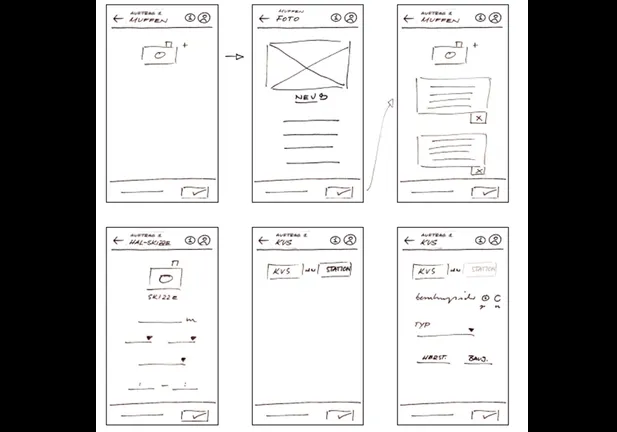 AUFTRAG 1
MUFFEN
MUFFEN
FOTO
NEU
AUFTRAG 1
MUFFEN
AUFTRAG 1
HAL-SKIZZE
SKIZZE
m
AUFTRAG 1
KVS
KVS STATION
AUFTRAG 1
KVS
KVS STATION
TYP
HERST. BAUJ.